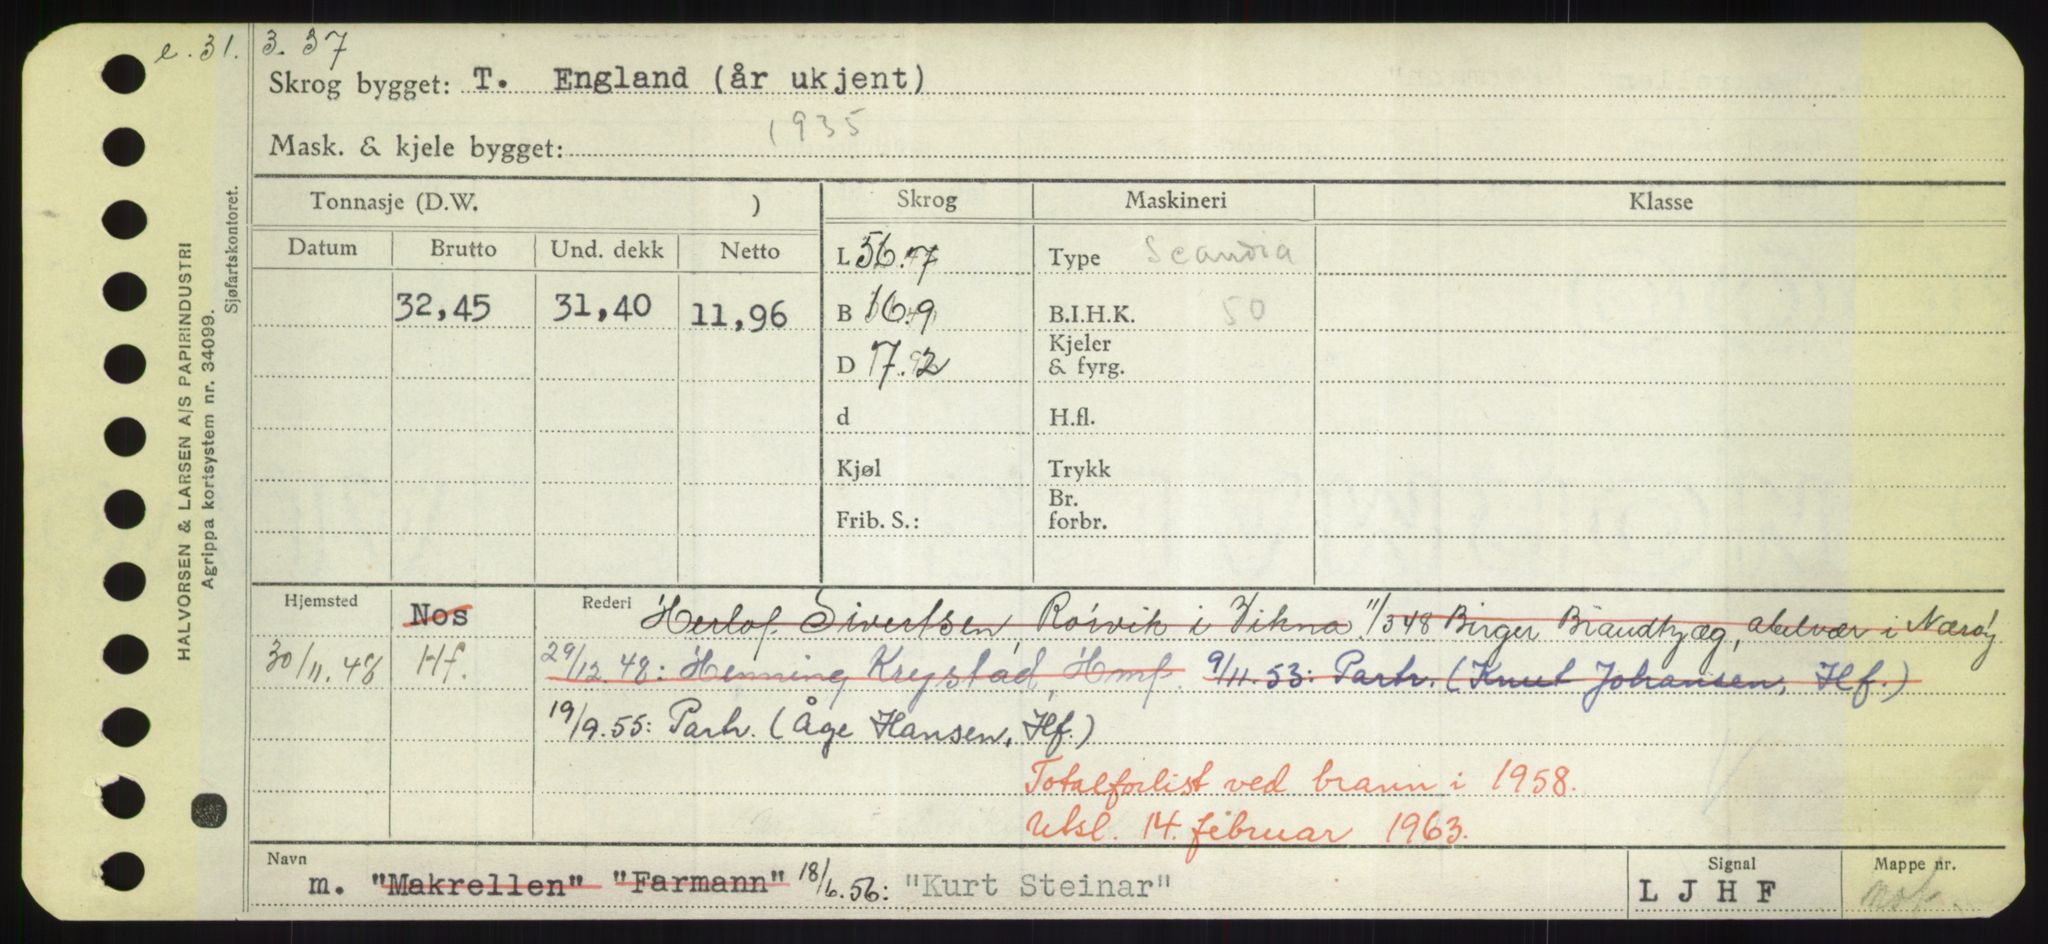 e. 31. 3. 37
Skrog bygget: T. England (år ukjent)
1935
Mask. & kjele bygget:
HALVORSEN & LARSEN A/S PAPIRINDUSTRI
Agrippa kortsystem nr. 34099.
Sjøfartskontoret.
Tonnasje (D.W. ) Skrog Maskineri Klasse
Datum Brutto Und. dekk Netto
L 56.7 Type Scandia
32,45 31,40 11,96 B 16.9 B.I.H.K. 50
D 7.2 Kjeler & fyrg.
d H.fl.
Kjøl Trykk
Frib. S.: Br. forbr.
Hjemsted Nos Rederi Herlof Sivertsen, Rörvik i Vikna. 11/3 48 Birger Brandtzæg, abelvær i Nærøy
30/11.48 Hf. 29/12.48: Henning Krystad, Hmf. 9/11.53: Partr. (Knut Johansen, Hf.)
19/9.55: Partr. (Åge Hansen, Hf.)
Totalforlist ved brann i 1958.
Utsl. 14. februar 1963.
Navn Signal Mappe nr.
m. "Makrellen" "Farmann" 18/6.56: "Kurt Steinar" L J H F mot.